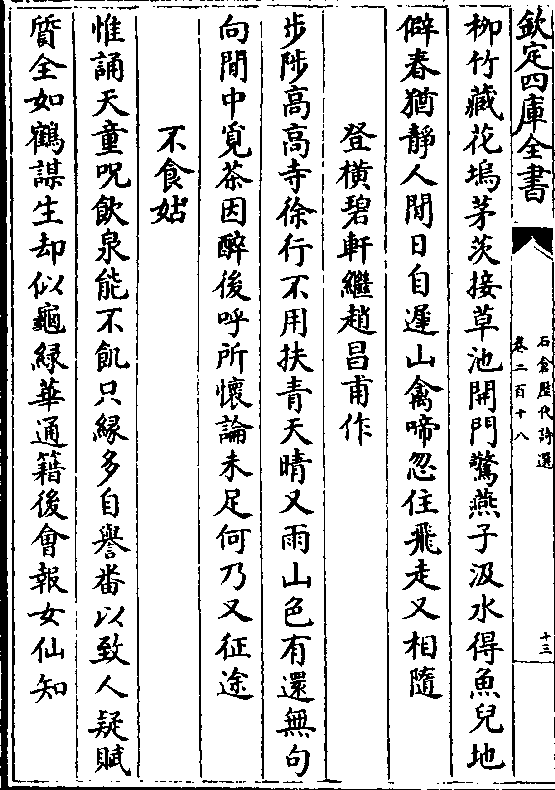 欽定四庫全書
石倉歷代詩選
卷二百十八
十三
柳竹藏花塢茅茨接草池開門驚燕子汲水得魚兒地
僻春猶靜人閒日自遲山禽啼忽住飛走又相隨
登橫碧軒繼趙昌甫作
步陟高高寺徐行不用扶青天晴又雨山色有還無句
向閒中覓茶因醉後呼所懷論未足何乃又征途
不食姑
惟誦天童呪飲泉能不飢只緣多自譽番以致人疑賦
質全如鶴謀生却似龜緑華通籍後會報女仙知